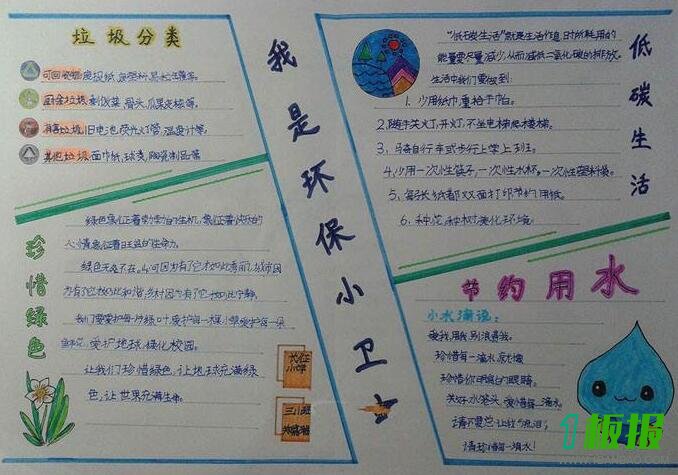 垃圾分类
可回收物:废报纸、
厨余垃圾:剩饭菜、骨头、瓜果皮核等。
有害垃圾:旧电池、荧光灯管、温度计等。
其他垃圾:面巾纸、球麦、陶瓷制品等
珍惜绿色
绿色象征着勃勃的生机,象征着快乐的
心情,象征着旺盛的生命力。
绿色无处不在。山河因为有了它才如此秀丽,城市因
为有了它才如此和谐,乡村因为有了它才如此宁静。
我们要爱护每一片绿叶,爱护每一棵小草,爱护每一朵
鲜花,爱护地球,绿化校园。
让我们珍惜绿色,让地球充满绿
色,让世界充满生命。
小学
三(1)班
我是环保小卫士
“低碳生活”就是生活作息时所耗用的
能量要尽量减少,从而减低二氧化碳的排放。
生活中我们要做到:
1、少用纸巾,重拾手帕。
2、随手关灯、开灯,不坐电梯爬楼梯。
3、骑自行车或步行上学上班。
4、少用一次性筷子,一次性水杯,一次性塑料袋。
5、每张纸都双面打印节约用纸。
6、种花、种树美化环境。
低碳生活
节约用水
小水滴说:
爱我,用我,别浪费我。
珍惜每一滴水,就像
珍惜你明亮的眼睛。
关好水龙头,爱惜每一滴水。
请不要它让我“流泪”;
请珍惜每一滴水!
板报